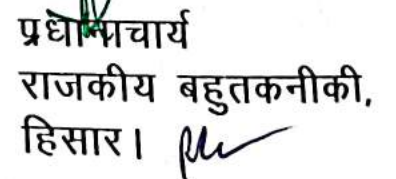 प्रधानाचार्य
राजकीय बहुतकनीकी,
हिसार।